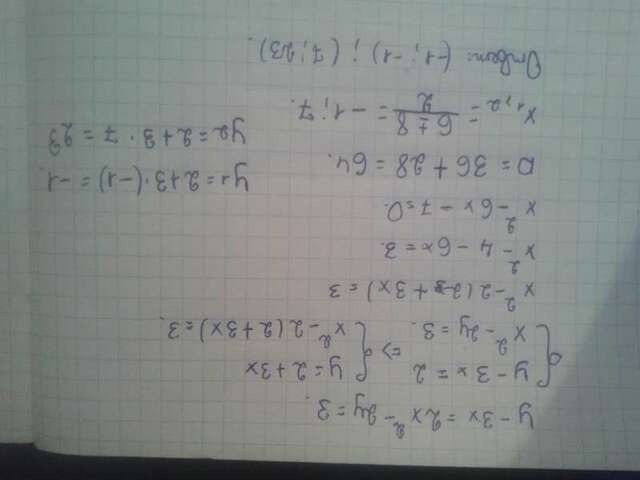 y - 3x = 2x² - 2y = 3.
{ y - 3x = 2 => { y = 2 + 3x
x² - 2y = 3. x² - 2(2 + 3x) = 3.
x² - 2(2 + 3x) = 3
x² - 4 - 6x = 3.
x² - 6x - 7 = 0.
D = 36 + 28 = 64.
x₁,₂ = (6 ∓ 8)/2 = -1; 7.
y₁ = 2 + 3·(-1) = -1.
y₂ = 2 + 3·7 = 23
Ответ: (-1; -1); (7; 23).